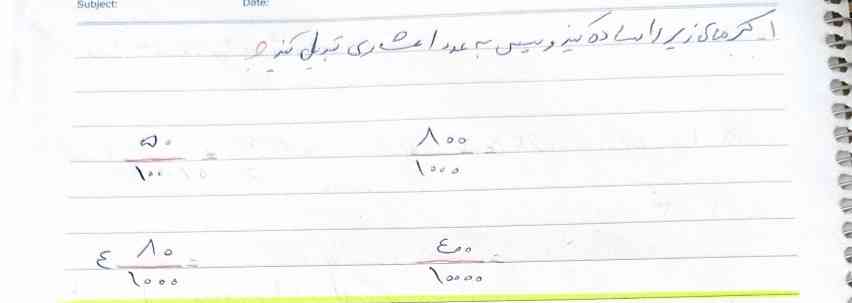 Subject: Date:
۱ـ کسرهای زیر را ساده کنید و سپس به عدد اعشاری تبدیل کنید
۸۰۰/۱۰۰۰ = ۵۰/۱۰۰ =
۴۰۰/۱۰۰۰۰ = ۴ ۸۰/۱۰۰۰ =